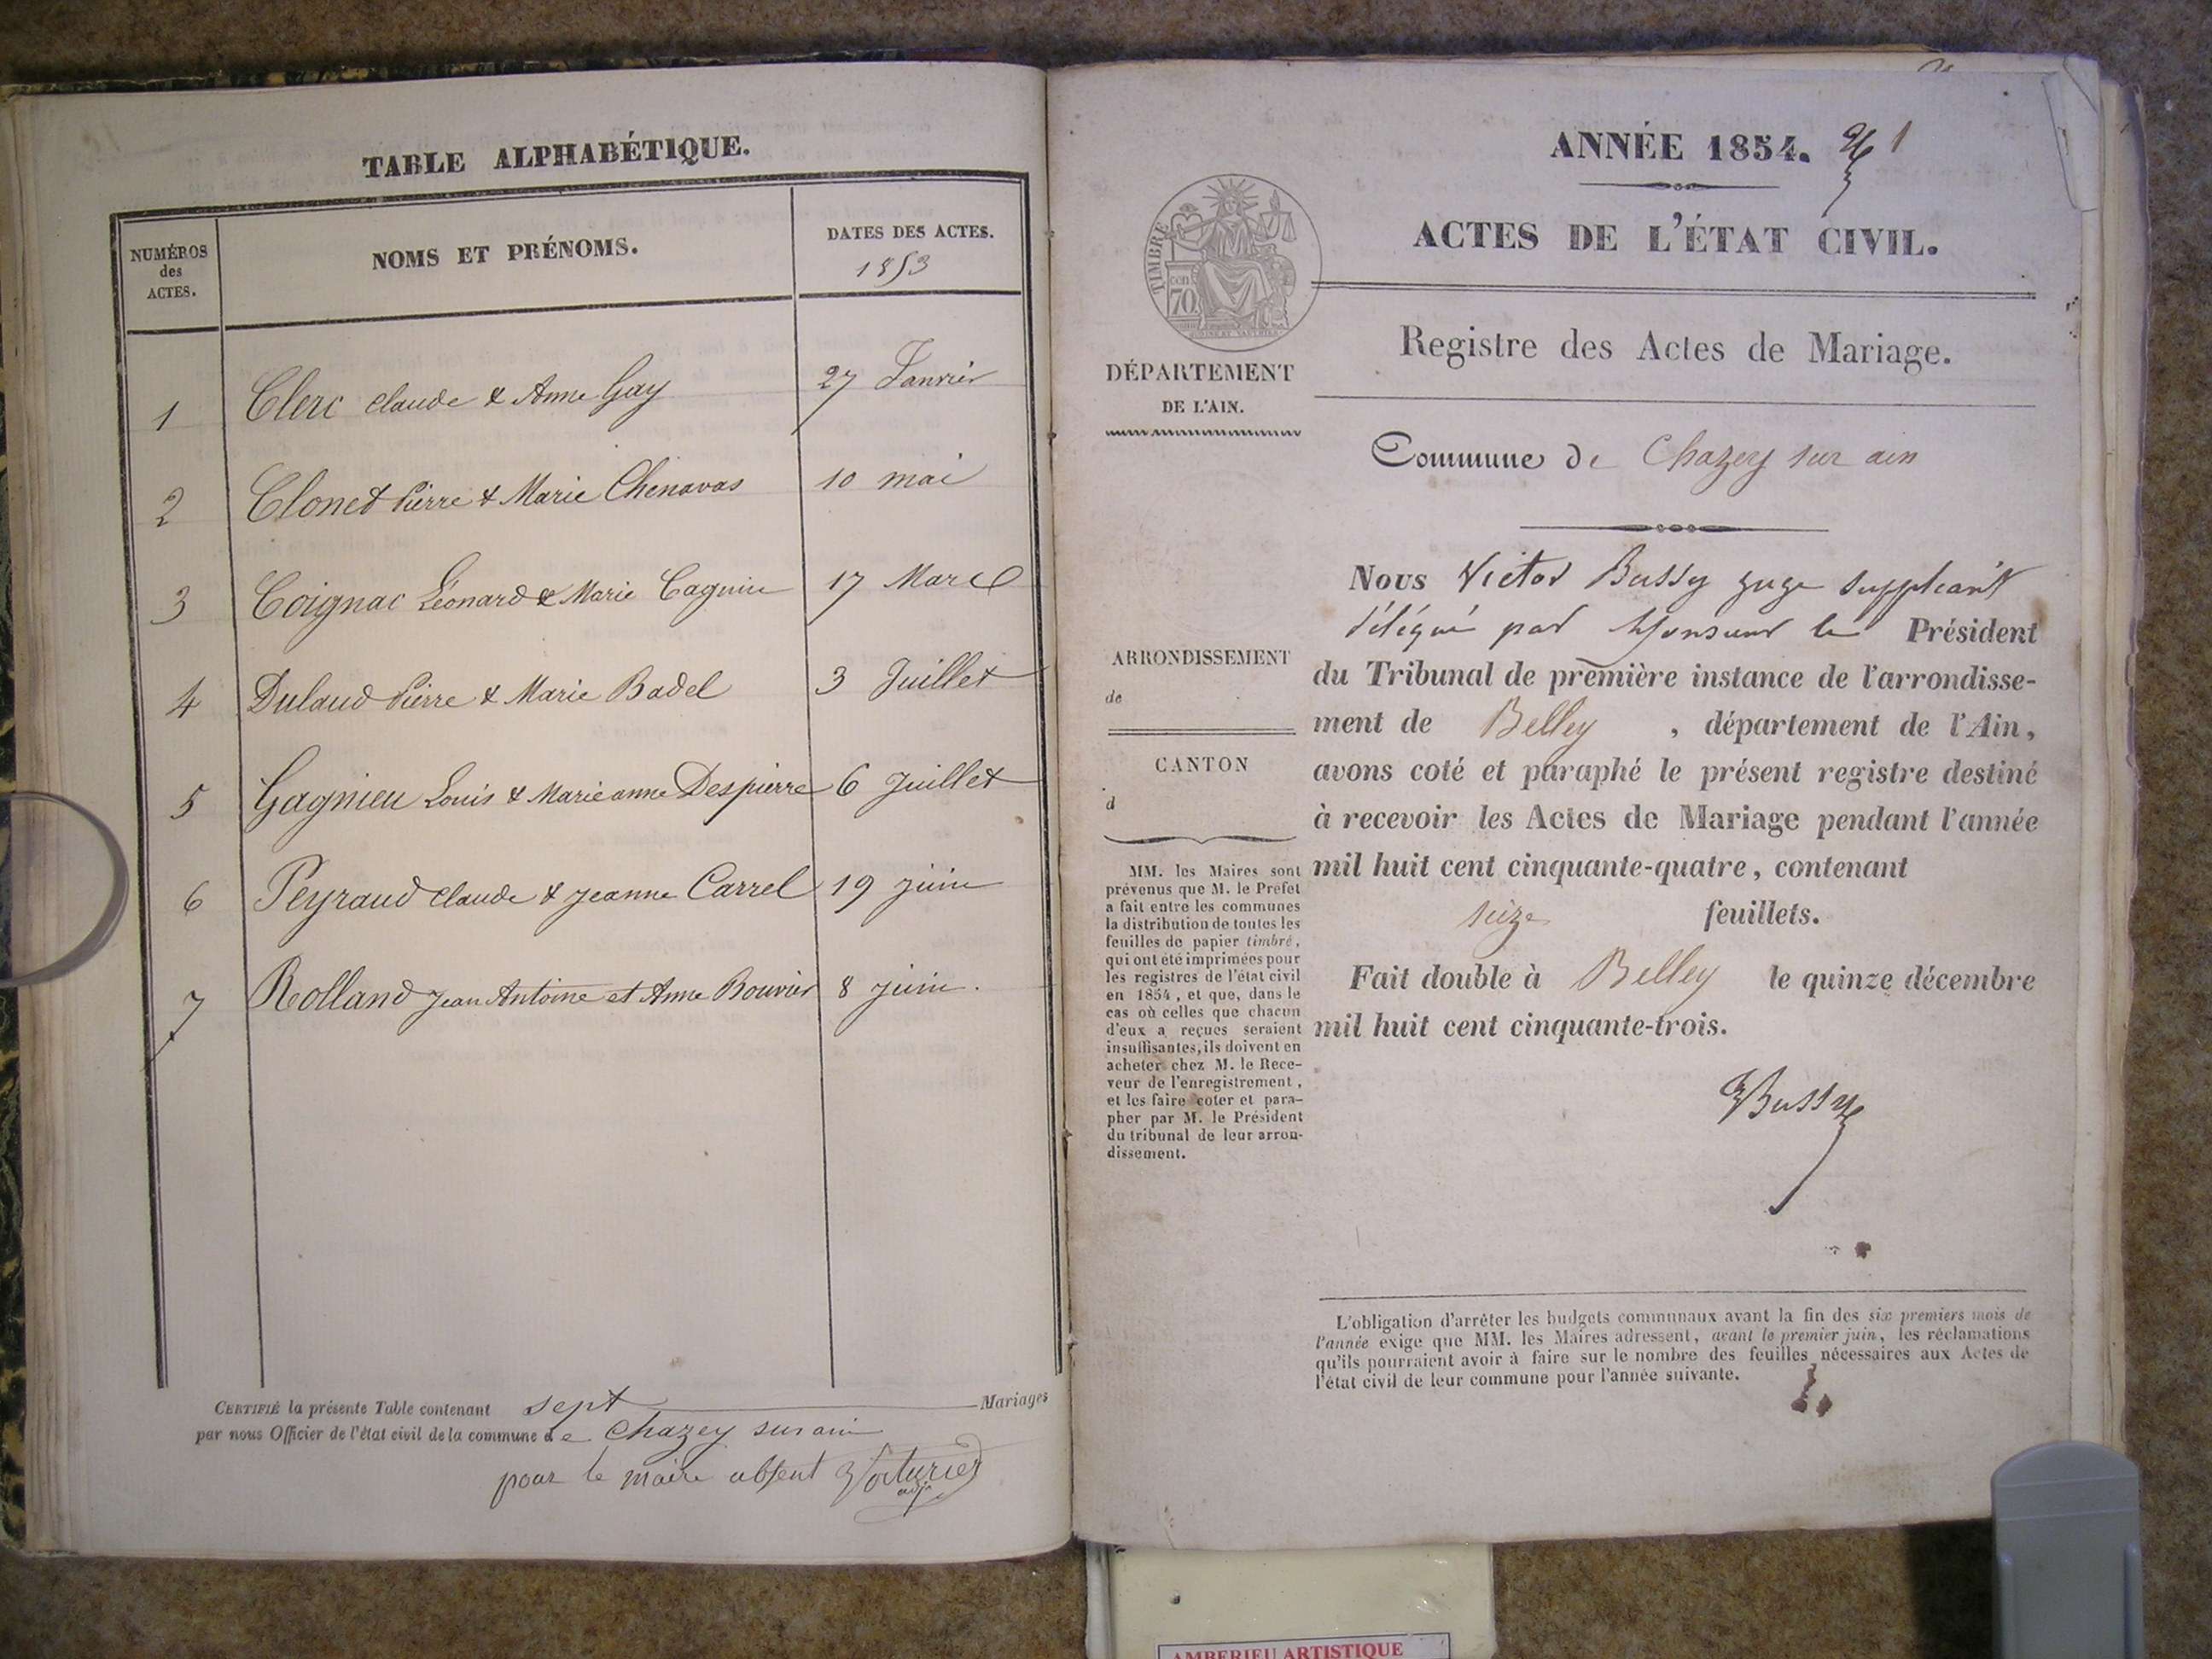 TABLE ALPHABÉTIQUE.
NUMÉROS
des
ACTES.
NOMS ET PRÉNOMS.
DATES DES ACTES.
1853
1 Clerc Claude & Anne Gay 27 Janvier
2 Clonet Pierre & Marie Chenavas 10 mai
3 Coignac Léonard & Marie Cagnin 17 Mars
4 Dulaud Pierre & Marie Badel 3 Juillet
5 Gagnieu Louis & Marieanne Despierre 6 Juillet
6 Peyraud Claude & Jeanne Carrel 19 juin
7 Rolland Jean Antoine et Anne Bouvier 8 juin.
CERTIFIÉ la présente Table contenant sept Mariages
par nous Officier de l'état civil de la commune de Chazey sur ain
pour le maire absent Voiturier
adj.
ANNÉE 1854. 1
ACTES DE L'ÉTAT CIVIL.
TIMBRE
70
DÉPARTEMENT
DE L'AIN.
Registre des Actes de Mariage.
Commune de Chazey sur ain
ARRONDISSEMENT
de
CANTON
d
MM. les Maires sont
prévenus que M. le Préfet
a fait entre les communes
la distribution de toutes les
feuilles de papier timbré,
qui ont été imprimées pour
les registres de l'état civil
en 1854, et que, dans le
cas où celles que chacun
d'eux a reçues seraient
insuffisantes, ils doivent en
acheter chez M. le Rece-
veur de l'enregistrement,
et les faire coter et para-
pher par M. le Président
du tribunal de leur arron-
dissement.
Nous Victor Bussy juge suppléant
délégué par Monsieur le Président
du Tribunal de première instance de l'arrondisse-
ment de Belley , département de l'Ain,
avons coté et paraphé le présent registre destiné
à recevoir les Actes de Mariage pendant l'année
mil huit cent cinquante-quatre, contenant
seize feuillets.
Fait double à Belley le quinze décembre
mil huit cent cinquante-trois.
VBussy
L'obligation d'arrêter les budgets communaux avant la fin des six premiers mois de
l'année exige que MM. les Maires adressent, avant le premier juin, les réclamations
qu'ils pourraient avoir à faire sur le nombre des feuilles nécessaires aux Actes de
l'état civil de leur commune pour l'année suivante.
AMBERIEU ARTISTIQUE